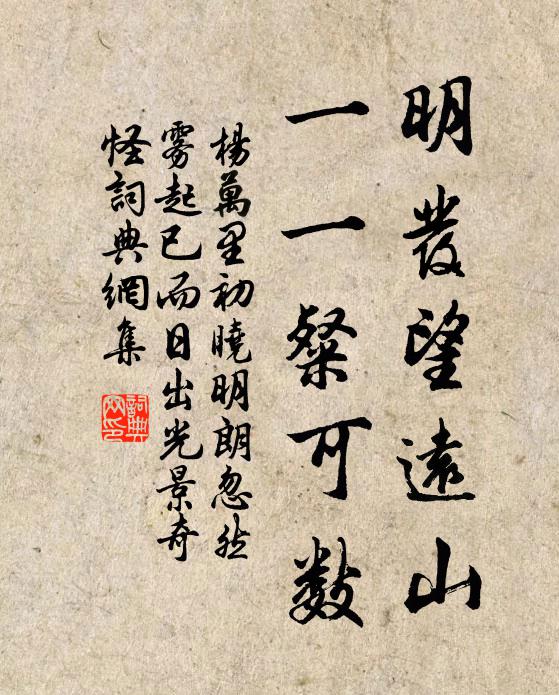 明發望遠山
一一粲可數
楊萬里初曉明朗忽然
霧起已而日出光景奇
怪詞典網集
詞典
网印